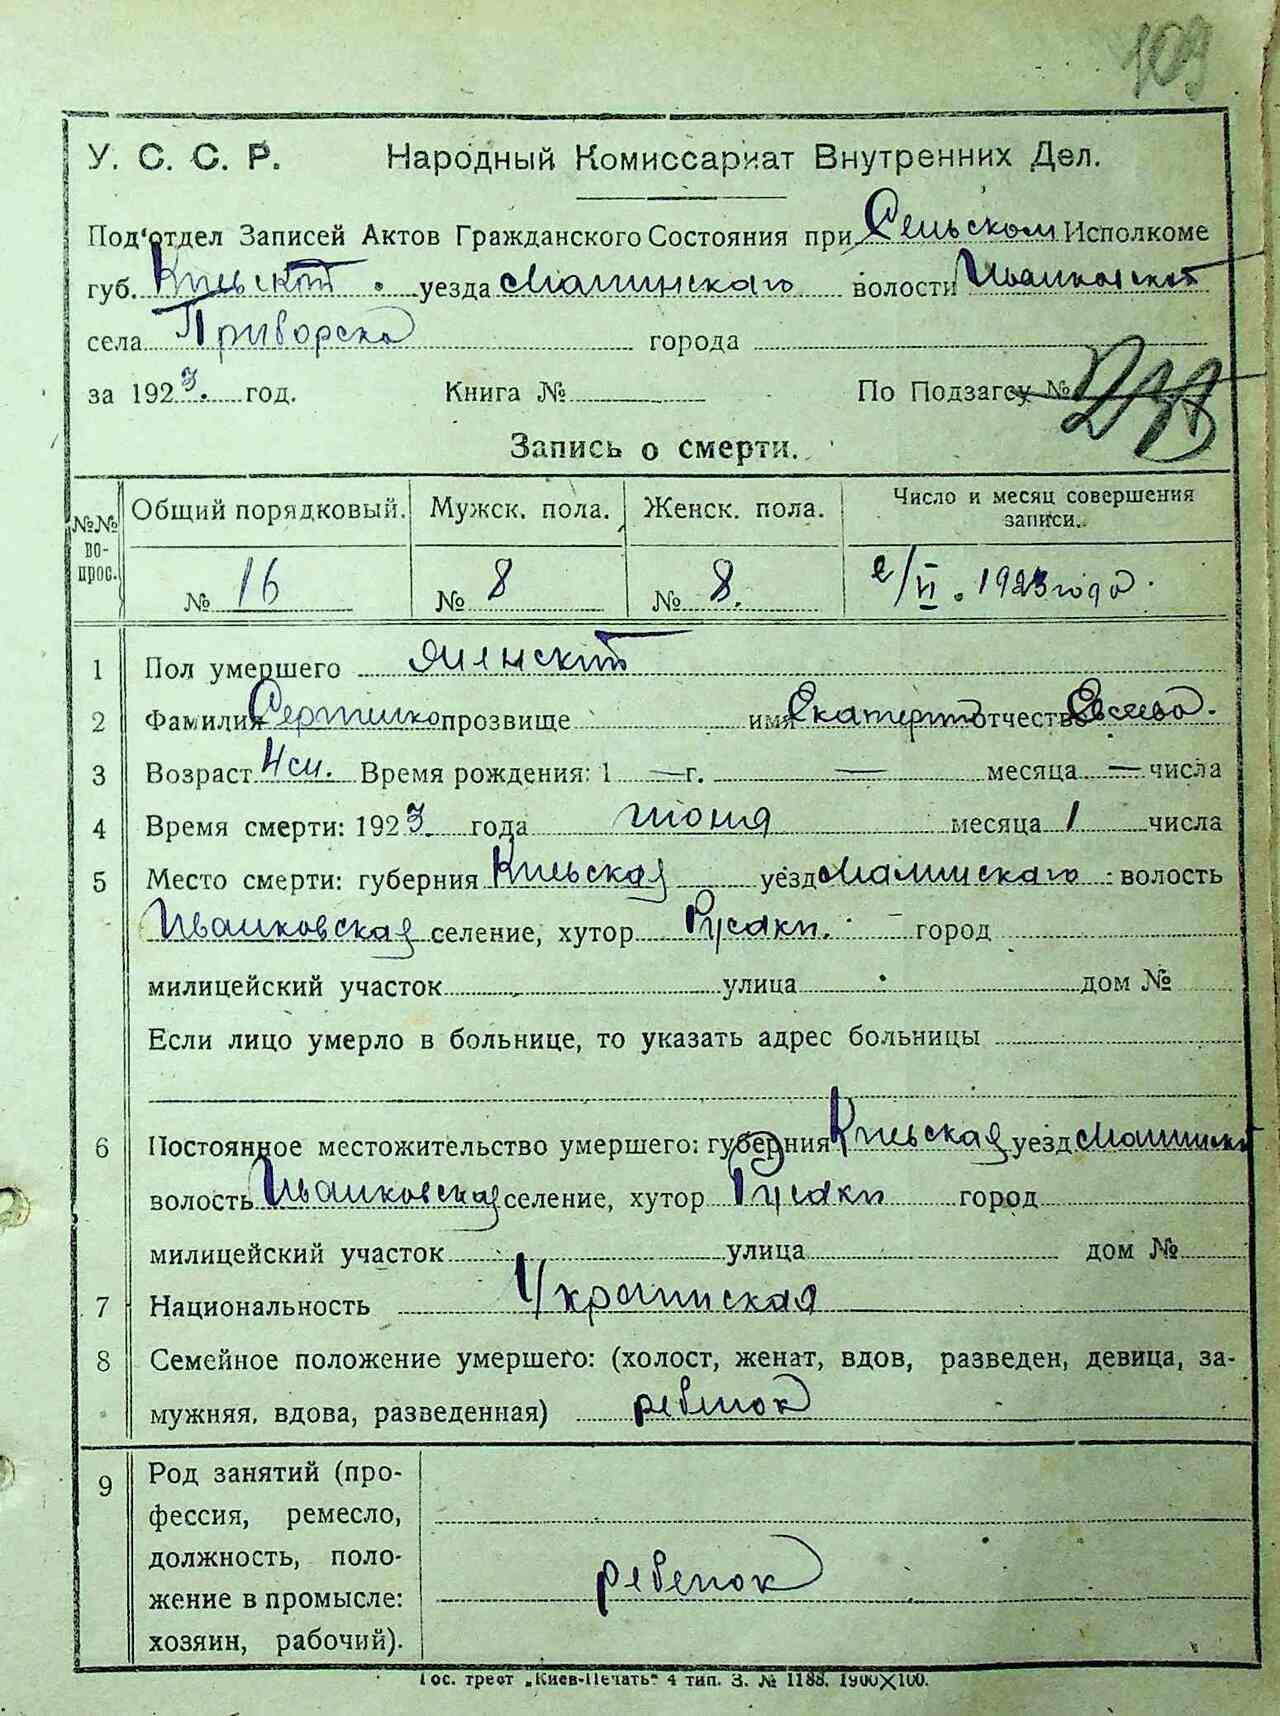 109
У. С. С. Р. Народный Комиссариат Внутренних Дел.
Под'отдел Записей Актов Гражданского Состояния при Сельском Исполкоме
губ. Киевской уезда Малинского волости Иванковской
села Приворска города
за 1923. год. Книга № По Подзагсу №
Запись о смерти.
№№ вопрос. Общий порядковый. Мужск. пола. Женск. пола. Число и месяц совершения записи.
№ 16 № 8 № 8. 2/VI. 1923 года.
1 Пол умершего женский
2 Фамилия прозвище имя Екатер отчество Евсеева.
3 Возраст 4 м. Время рождения: 1 — г. — месяца — числа
4 Время смерти: 1923. года июня месяца 1 числа
5 Место смерти: губерния Киевская уезд Малинского волость
Иванковская селение, хутор Русаки. город
милицейский участок улица дом №
Если лицо умерло в больнице, то указать адрес больницы
6 Постоянное местожительство умершего: губерния Киевская уезд Малинск
волость Иванковская селение, хутор Русаки город
милицейский участок улица дом №
7 Национальность Украинская
8 Семейное положение умершего: (холост, женат, вдов, разведен, девица, за-
мужняя, вдова, разведенная) ребенок
9 Род занятий (про-
фессия, ремесло,
должность, поло-
жение в промысле: ребенок
хозяин, рабочий).
Гос. трест „Киев-Печать" 4 тип. З. № 1188. 1900X100.